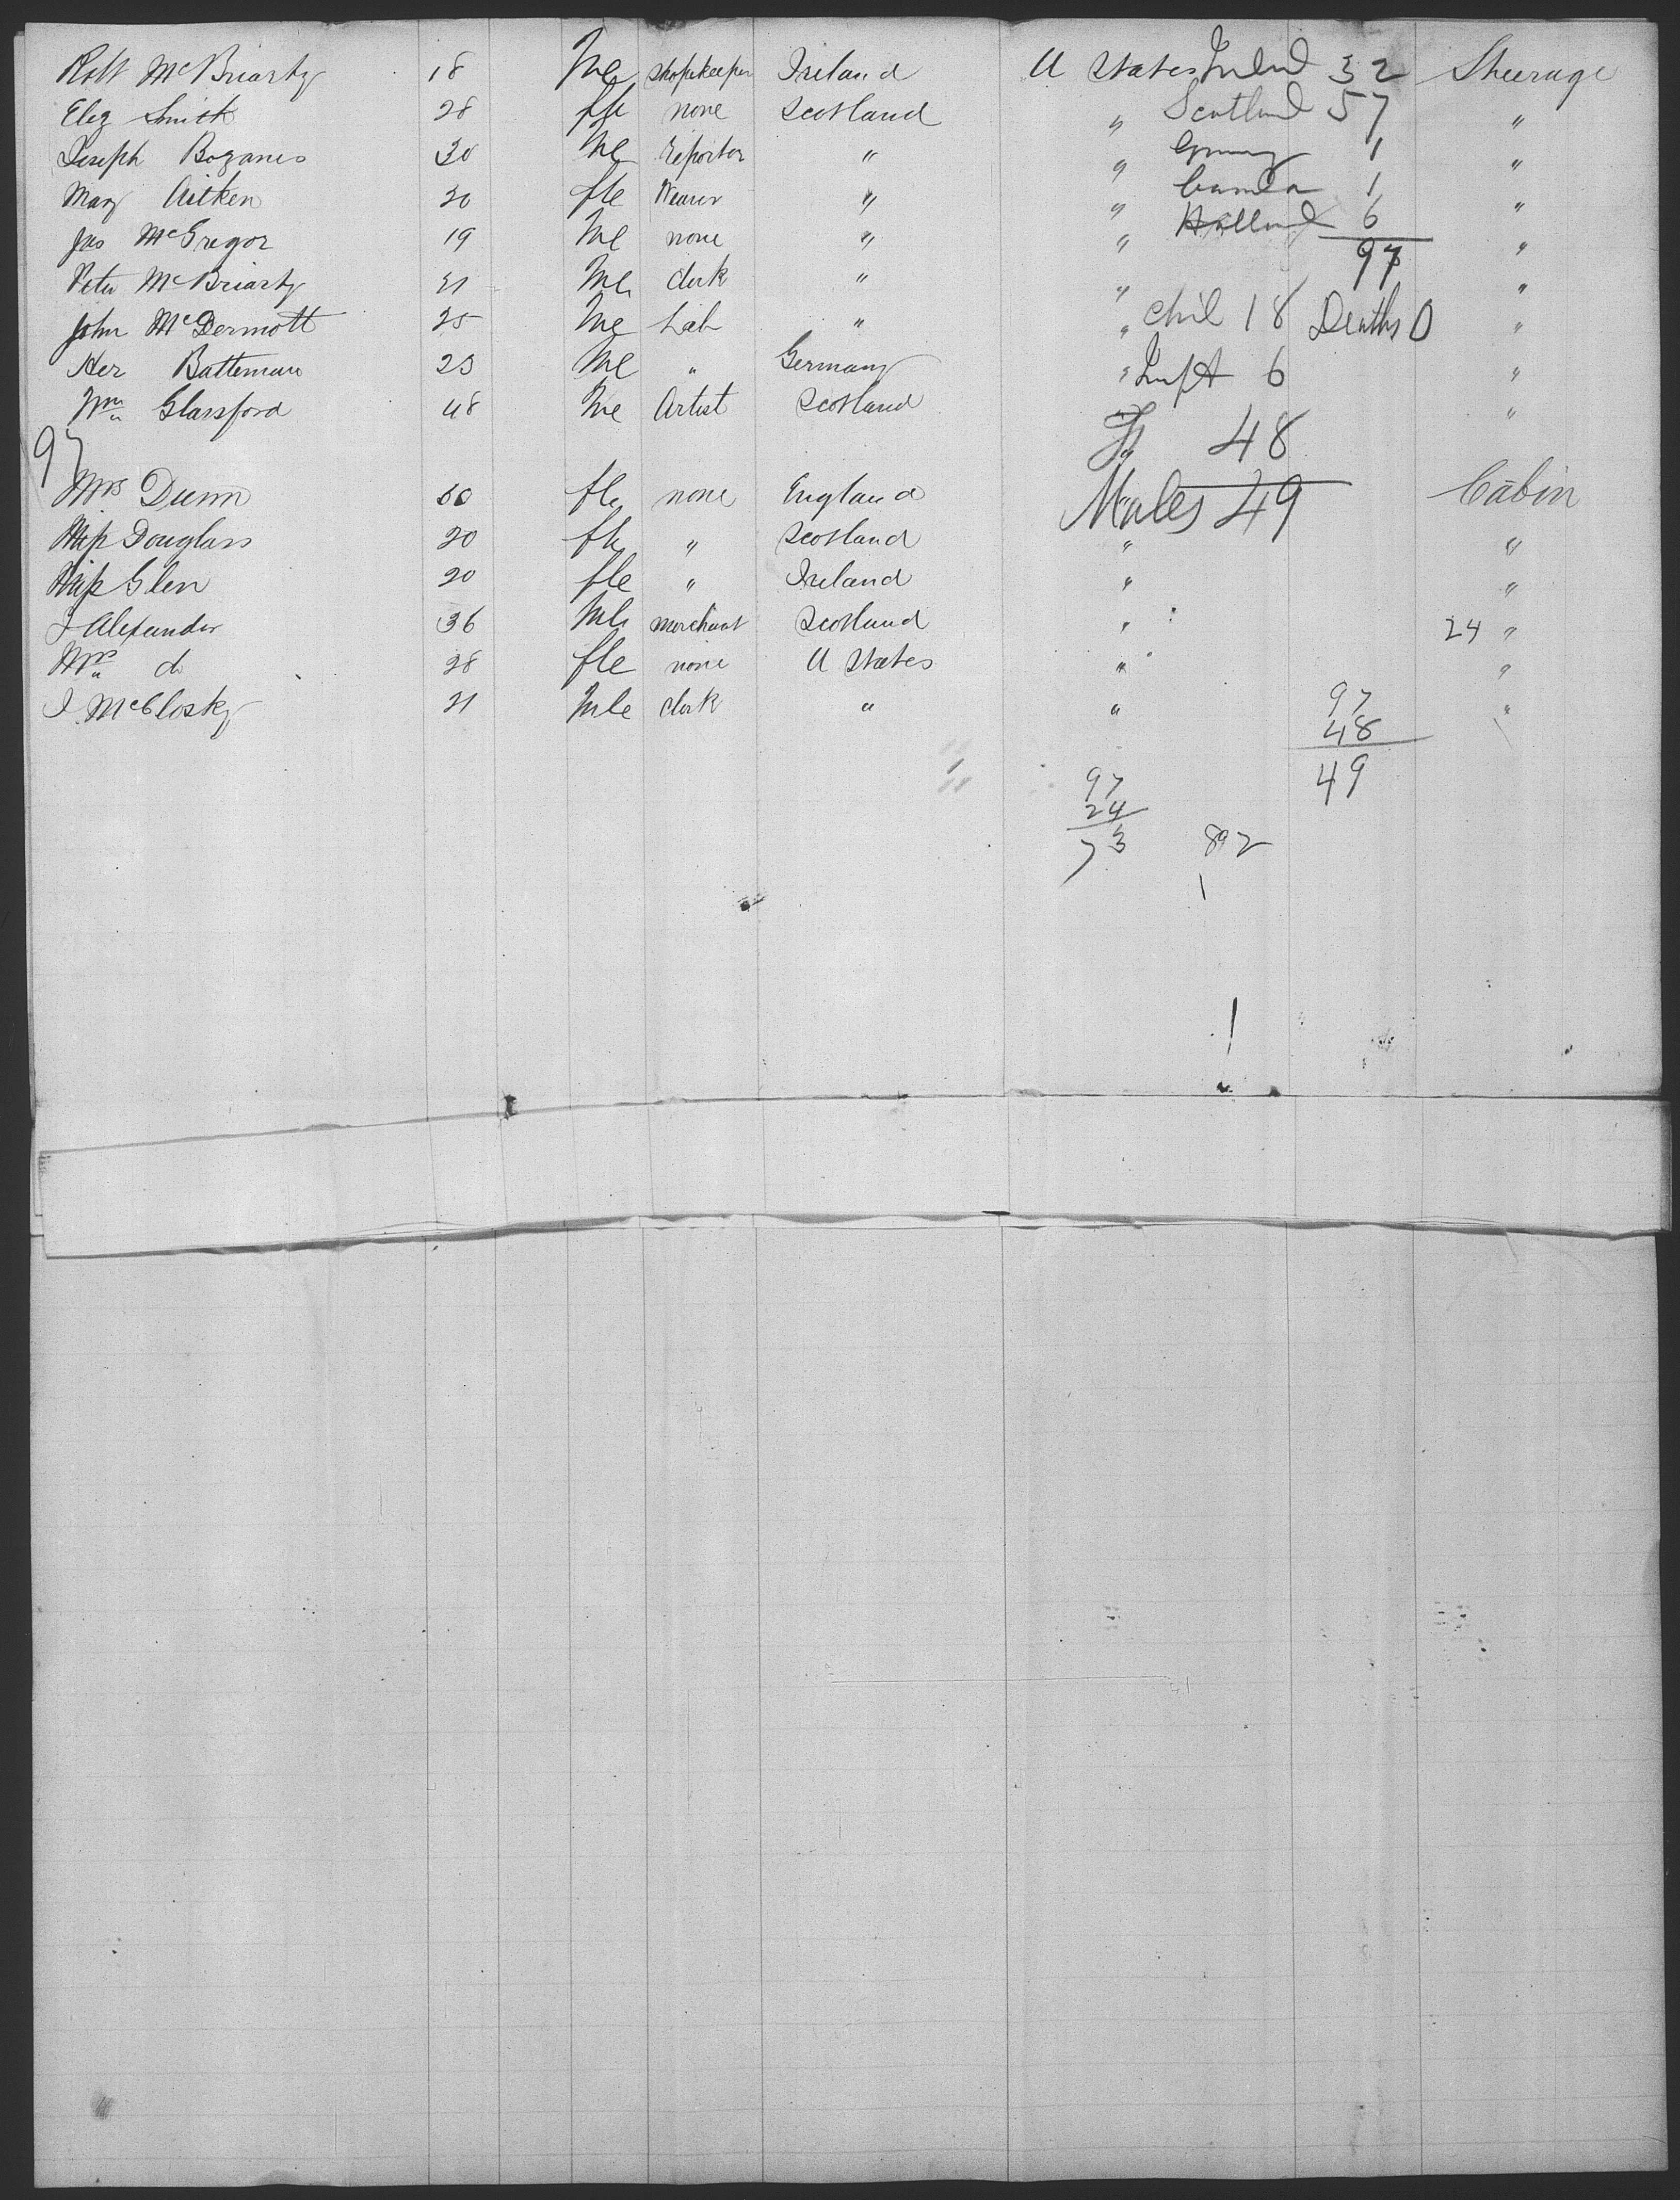 Robt McBriarty 18 Mle Shopkeeper Ireland U States Irelnd 32 Steerage
Eliz Smith 28 fle none Scotland " Scotland 57 "
Joseph 30 Mle Reporter " " Germny 1 "
Mary Aitken 20 fle Weaver " " Canada 1 "
Jas McGregor 19 Mle none " " Holland 6 "
97
Peter McBriarty 21 Mle Clerk " " "
John McDermott 25 Mle Lab " " Chil 18 Deaths 0 "
Her Batteman 23 Mle " Germany " Inft 6 "
Wm Glassford 48 Mle Artist Scotland " F 48 "
97
Mrs Dunn 50 fle none England Males 49 Cabin
Miss Douglass 20 fle " Scotland " "
Miss Glen 20 fle " Ireland " "
J Alexander 36 Mle merchant Scotland " 24 "
Mrs do 28 fle none U States " "
J. McClosky 21 Mle Clerk " " "
97
48
49
97
24
73
892
1